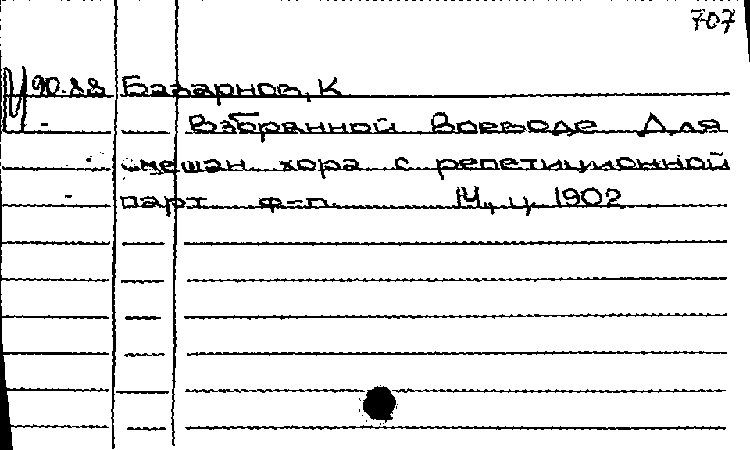 707
90.88 Базарнов, К
- Взбранной Воеводе Для
смешан. хора с репетиционной
- парт. ф-п. М., ц. 1902